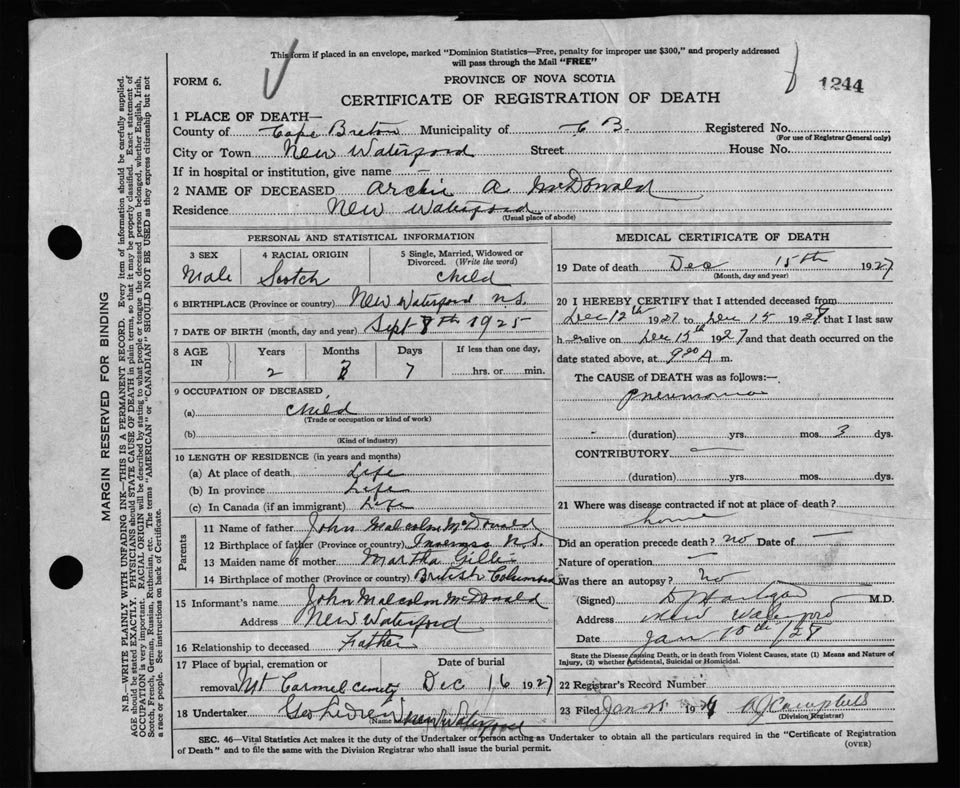 This form if placed in an envelope, marked "Dominion Statistics—Free, penalty for improper use $300," and properly addressed
will pass through the Mail "FREE"
FORM 6.
PROVINCE OF NOVA SCOTIA
1244
CERTIFICATE OF REGISTRATION OF DEATH
1 PLACE OF DEATH—
County of Cape Breton Municipality of C B. Registered No.
(For use of Registrar General only)
City or Town New Waterford Street House No.
If in hospital or institution, give name —
2 NAME OF DECEASED Archie A McDonald
Residence New Waterford
(Usual place of abode)
MARGIN RESERVED FOR BINDING
N.B.—WRITE PLAINLY WITH UNFADING INK—THIS IS A PERMANENT RECORD. Every item of information should be carefully supplied.
AGE should be stated EXACTLY. PHYSICIANS should STATE CAUSE OF DEATH in plain terms, so that it may be properly classified. Exact statement of
OCCUPATION is very important. RACIAL ORIGIN will be described by stating to what people or tongue the deceased person belonged, whether English, Irish,
Scotch, French, German, Russian, Ruthenian, etc. The terms "AMERICAN" or "CANADIAN" SHOULD NOT BE USED as they express citizenship but not
a race or people. See instructions on back of Certificate.
PERSONAL AND STATISTICAL INFORMATION
3 SEX
Male
4 RACIAL ORIGIN
Scotch
5 Single, Married, Widowed or
Divorced. (Write the word)
Child
6 BIRTHPLACE (Province or country) New Waterford N.S.
7 DATE OF BIRTH (month, day and year) Sept 8th 1925
8 AGE
IN
Years
2
Months
3
Days
7
If less than one day,
hrs. or min.
9 OCCUPATION OF DECEASED
(a) Child
(Trade or occupation or kind of work)
(b)
(Kind of industry)
10 LENGTH OF RESIDENCE (in years and months)
(a) At place of death Life
(b) In province Life
(c) In Canada (if an immigrant) Life
Parents
11 Name of father John Malcolm McDonald
12 Birthplace of father (Province or country) Inverness N.S.
13 Maiden name of mother Martha Gillis
14 Birthplace of mother (Province or country) British Columbia
15 Informant's name John Malcolm McDonald
Address New Waterford
16 Relationship to deceased Father
17 Place of burial, cremation or
Date of burial
removal Mt Carmel Cemetry Dec 16 1927
18 Undertaker Geo
(Name New Waterford
MEDICAL CERTIFICATE OF DEATH
19 Date of death Dec 15th 1927
(Month, day and year)
20 I HEREBY CERTIFY that I attended deceased from
Dec 12th 1927 to Dec 15 1927 that I last saw
h alive on Dec 15th 1927 and that death occurred on the
date stated above, at 9 A m.
The CAUSE OF DEATH was as follows:—
Pneumonia
(duration) yrs. mos. 3 dys.
CONTRIBUTORY —
(duration) yrs. mos. dys.
21 Where was disease contracted if not at place of death?
home
Did an operation precede death? no Date of —
Nature of operation —
Was there an autopsy? No
(Signed) M.D.
Address New Waterford
Date Jan 10th/28
State the Disease causing Death, or in death from Violent Causes, state (1) Means and Nature of
Injury, (2) whether Accidental, Suicidal or Homicidal.
22 Registrar's Record Number
23 Filed Jan 192 A J Campbell
(Division Registrar)
SEC. 46—Vital Statistics Act makes it the duty of the Undertaker or person acting as Undertaker to obtain all the particulars required in the "Certificate of Registration
of Death" and to file the same with the Division Registrar who shall issue the burial permit.
(OVER)